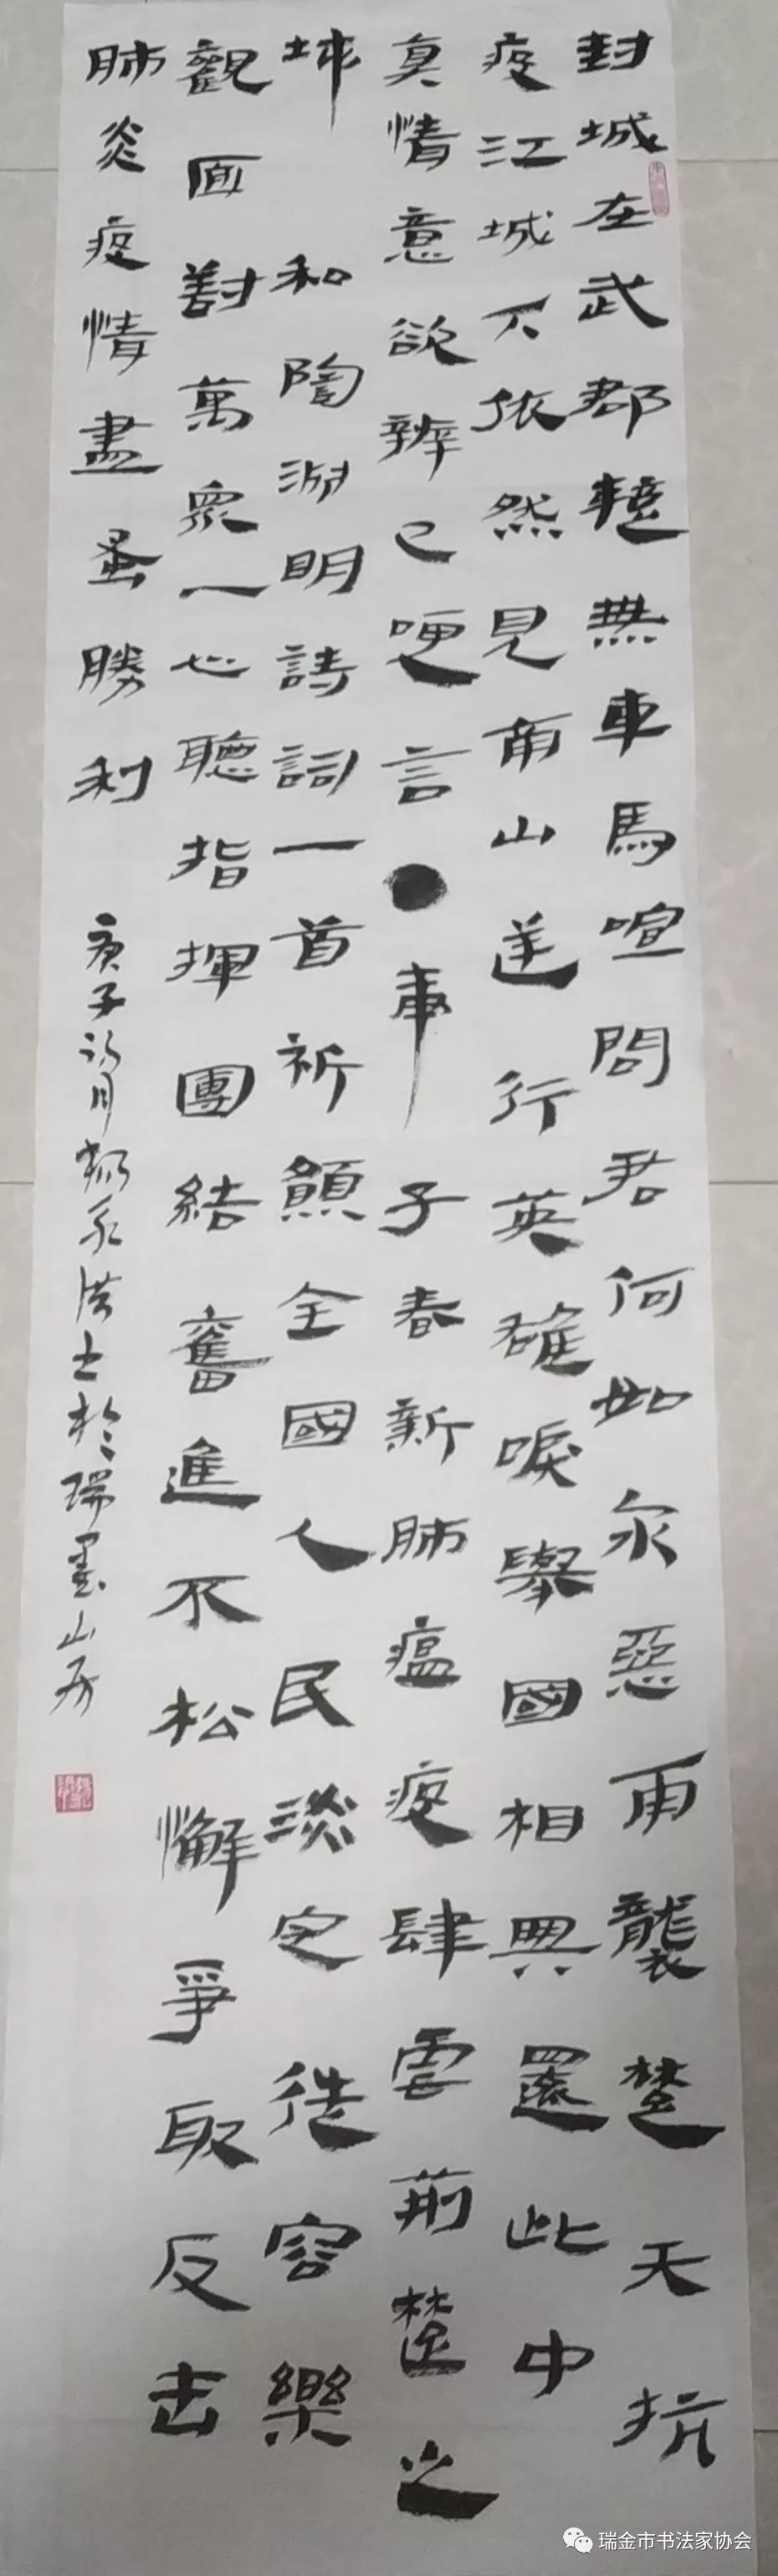 封城在武郡無車馬喧問君何如尔惡雨襲楚天抗
疫江城下依然見南山逆行英雄淚舉國相與還此中
真情意欲辨已哽言●子春新肺瘟疫肆虐荊楚之
和陶淵明詩詞一首祈願全國人民淡定從容樂
觀面對萬眾一心聽指揮團結奮進不松懈爭取反击
肺炎疫情盡蚤勝利
庚子初月楊永洪書於瑞墨山房
瑞金市书法家协会